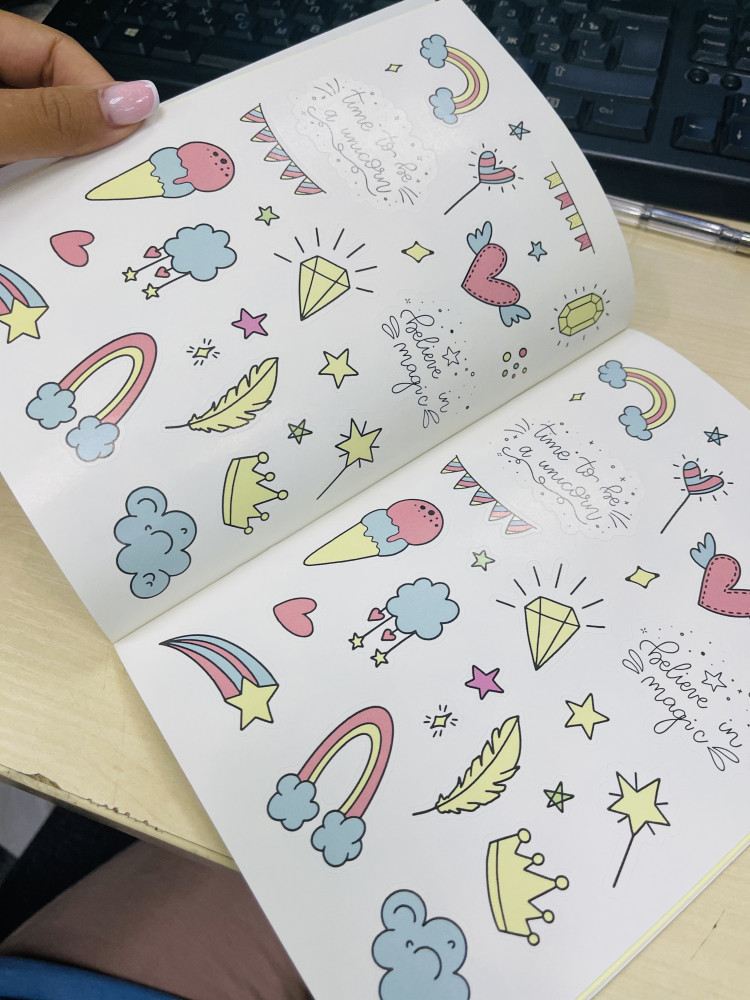 time to be
a unicorn
believe in
magic
time to be
a unicorn
believe in
magic